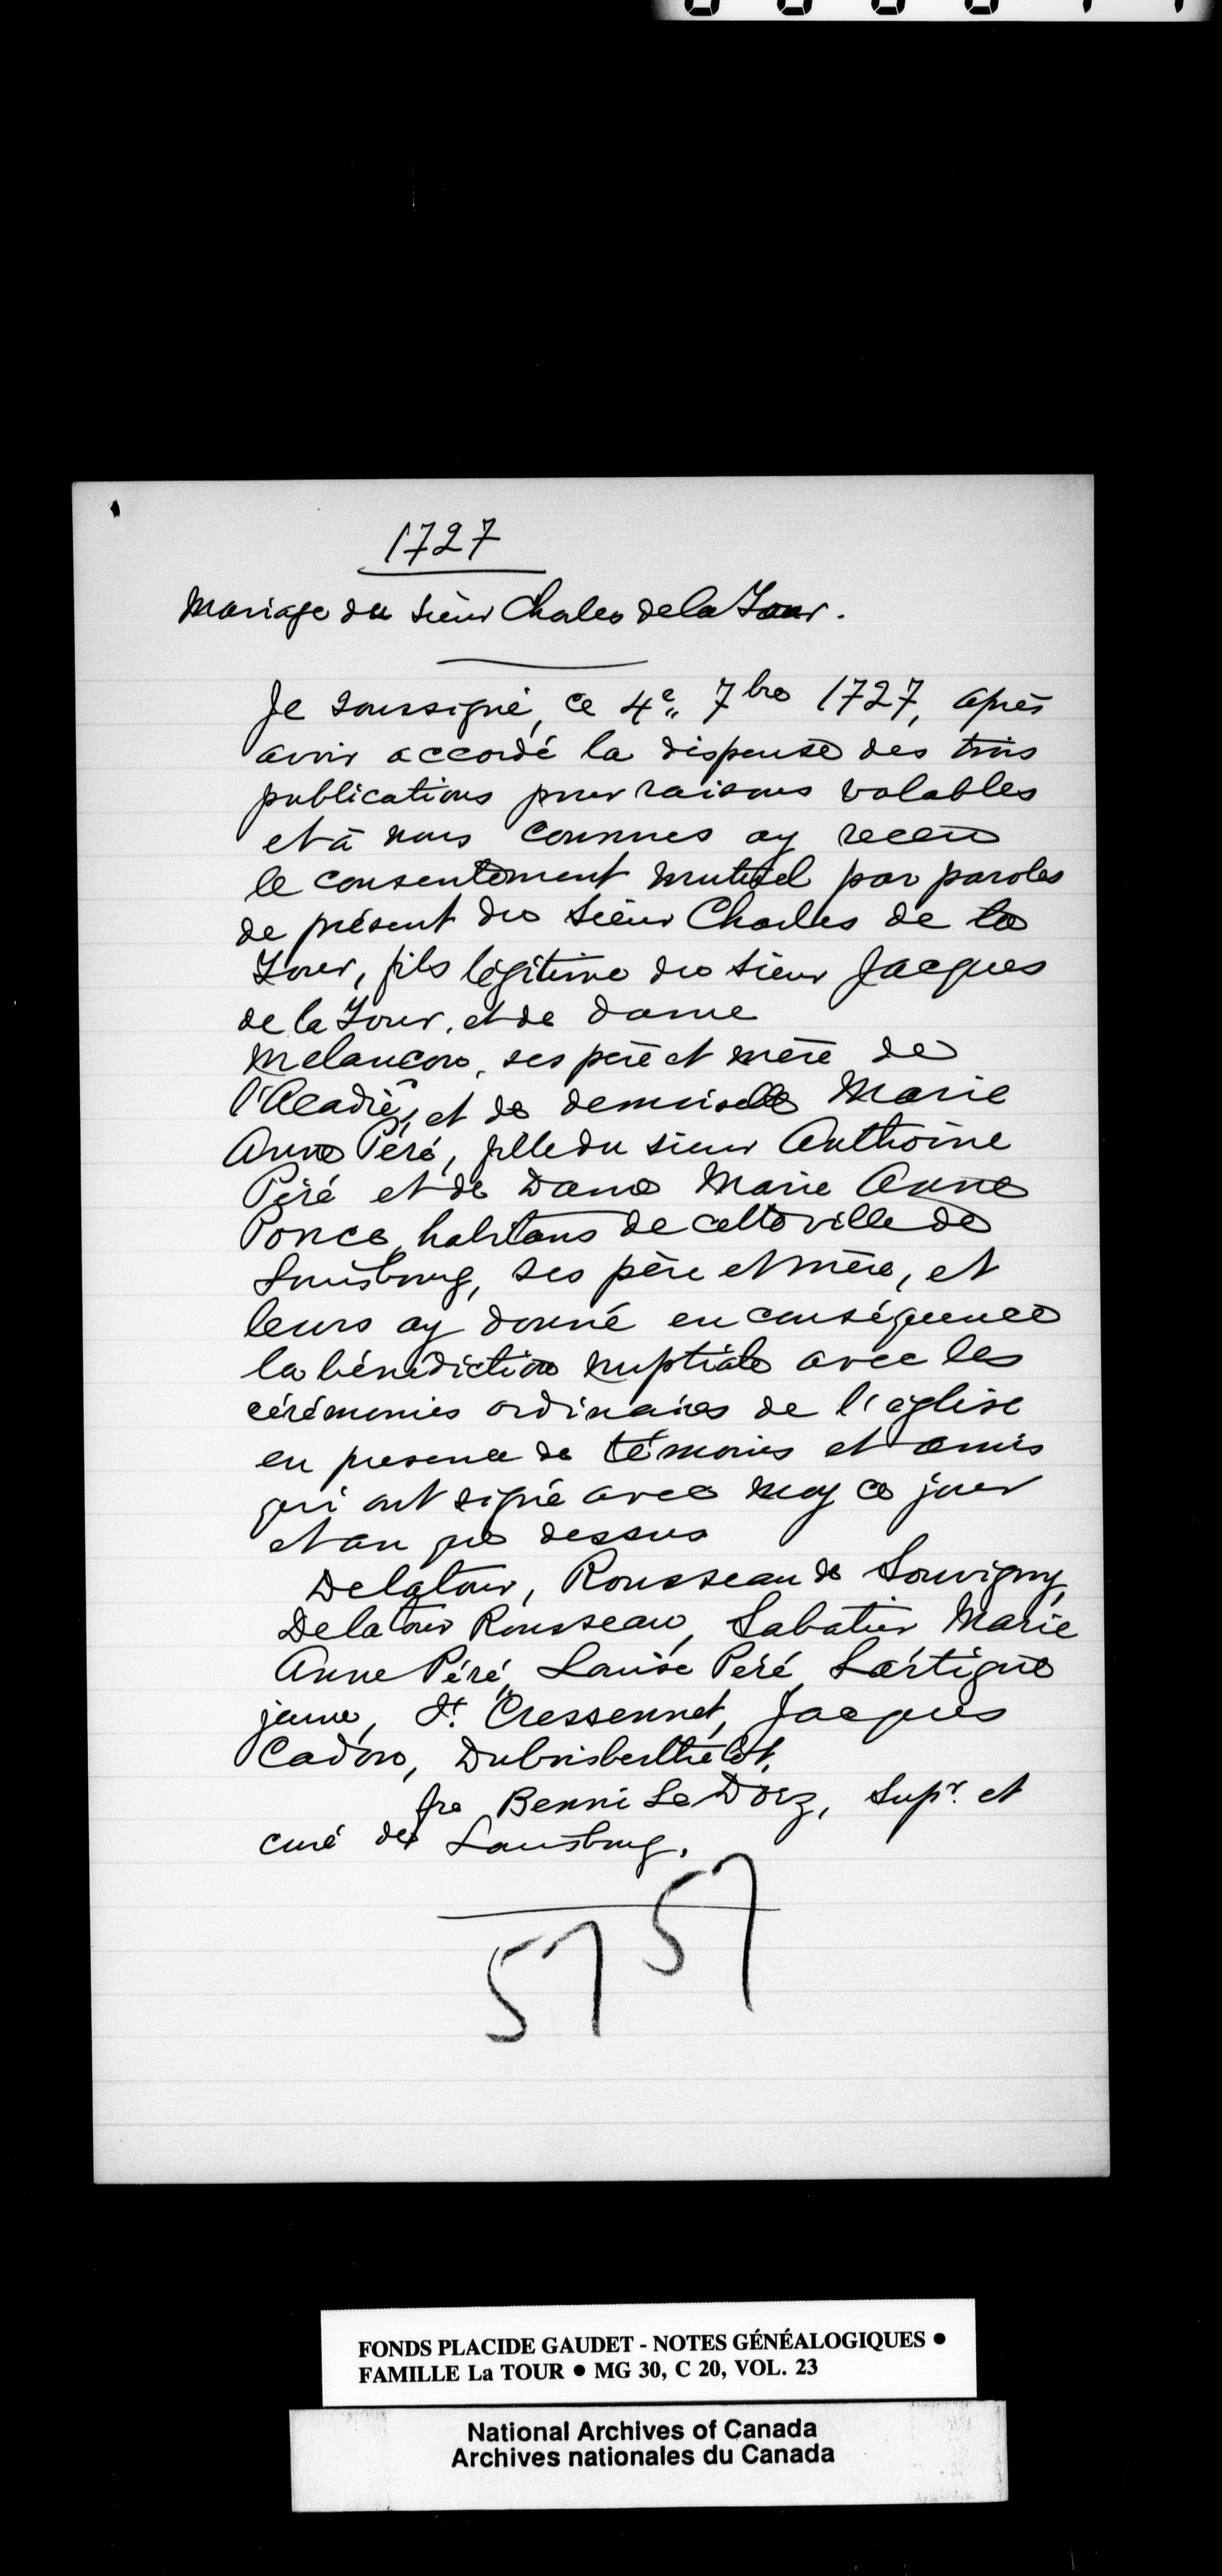 1727
Mariage du sieur Chales de la Tour.
Je soussigné, ce 4e 7bre 1727, après
avoir accordé la dispense des trois
publications pour raisons valables
et à nous connues ay receu
le consentement mutuel par paroles
de présent du sieur Charles de la
Tour, fils légitime du sieur Jacques
de la Tour, et de dame
Melancon, ses père et mère de
l'Acadie, et de demoiselle Marie
Anne Péré, fille du sieur Anthoine
Péré et de Dame Marie Anne
Ponce, habitans de cette ville de
Louisbourg, ses père et mère, et
leurs ay donné en conséquence
la bénédiction nuptiale avec les
cérémonies ordinaires de l'église
en presence de témoins et amis
qui ont signé avec moy ce jour
et an que dessus
Delatour, Rousseau de Souvigny,
Delatour Rousseau, Sabatier Marie
Anne Péré, Louise Peré, Lartigue
jeune, St. Cressennet, Jacques
Cadon, Duboisberthelot,
fre Benni Le Dorz, Supr. et
curé de Louisbourg.
57 57
FONDS PLACIDE GAUDET - NOTES GÉNÉALOGIQUES •
FAMILLE La TOUR • MG 30, C 20, VOL. 23
National Archives of Canada
Archives nationales du Canada